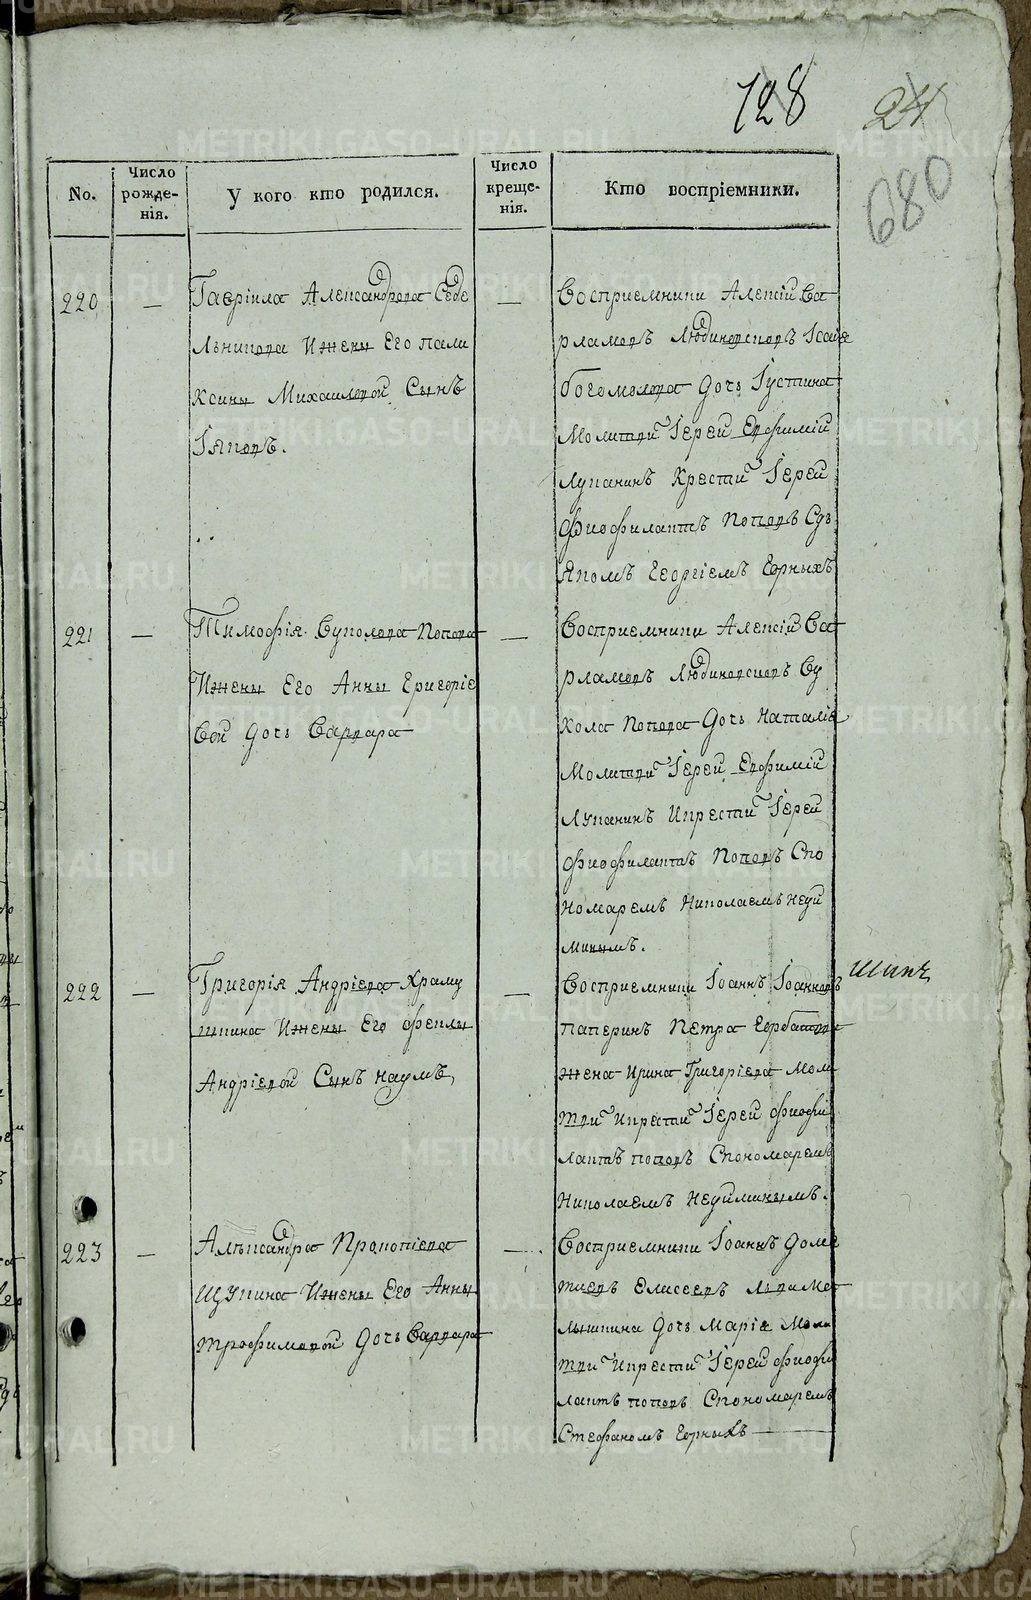 128 24
680
No.
Число рожде-нія.
У кого кто родился.
Число креще-нія.
Кто воспріемники.
220
Гавріила Александрова Себе
льникова Ижены Его пала
ксины Михаиловой Сынъ
Іяковъ.
Восприемники Алексій Ва
рламовъ Людиновсковъ Ісаія
богомолова дочь Іустина
Молитви Іерей Евфимій
Лупанинъ Крести Іерей
Фиофилактъ Поповъ Сдь
якомъ Георгіемъ Горныхъ
221
Тимофія Вуколова Попова
Ижены Его Анны Григоріе
вой дочь Варвара
Восприемники Алексій Ва
рламовъ Людиновсковъ Ву
кола Попова дочь Наталія
Молитви Іерей Евфимій
Лупанинъ Икрести Іерей
Фиофилактъ Поповъ Спо
номаремъ Николаемъ Неуй
минымъ.
222
Григорія Андріева Храму
шкина Ижены Его Феклы
Андріевой Сынъ Наумъ
Восприемники Іоаннъ Іоанновъ
Паперинъ Петра Горбатова
жена Ирина Григоріева Моли
тви Икрести Іерей Фиофи
лактъ поповъ Спономаремъ
Николаемъ Неуйминымъ.
223
Александра Прокопіева
Щукина Ижены Его Анны
Трофимовой дочь Варвара
Восприемники Іоаннъ Доме
тиевъ Елисеевъ Льва Ме
льшкина дочь Марія Моли
тви Икрести Іерей Фиофи
лактъ поповъ Спономаремъ
Стефаномъ Горныхъ
METRIKI.GASO-URAL.RU